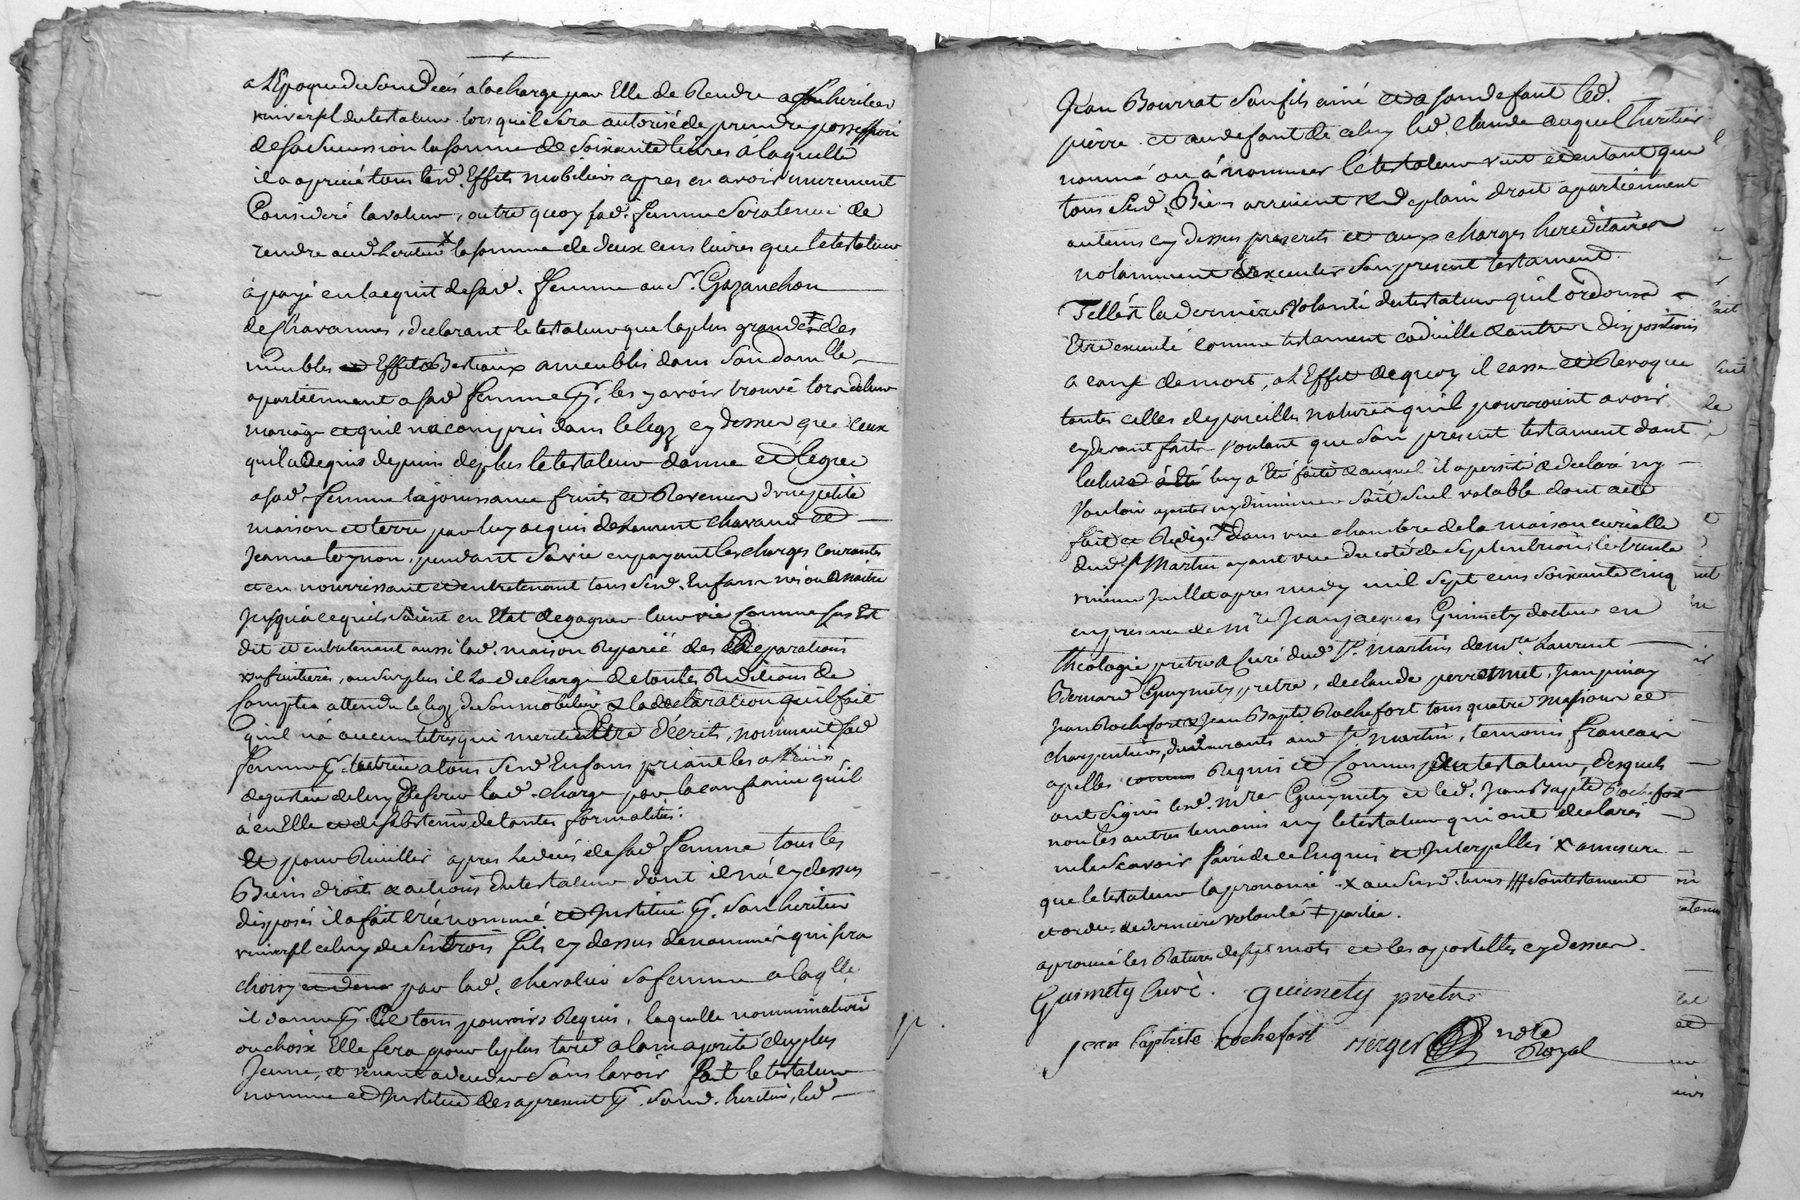 a L'Epoque du Son deces a la charge par Elle de Rendre a Son heritier
universel du testateur lors quil Sera autorisé de prendre possession
de Sa Succession la Somme de Soixante livres a laquelle
il a aprecié tous lesd. Effets mobiliers apres en avoir murement
Consideré la valeur, outre quoy sad. femme Sera tenue de
rendre aud. heritier x la Somme de deux cens livres que le testateur
à payé en lacquit de Sad. femme au Sr. Gazanchon
de Chavannes, declarant le testateur que la plus grande ‡ des
meubles et Effets Bestiaux ameublis dans Son domlle
apartiennent a Sad femme les y avoir trouvé lors de leur
mariage et quil n'a compris dans le legz cy dessus que Ceux
quil a acquis depuis de plus le testateur donne et legue
a Sad. femme la jouissance fruits et Revenus d'une petite
maison et terre par luy acquis de Laurent Chavand et
Jeanne , pendant Sa vie en payant les charges Courantes
et en nourrissant et entretenant tous Sesd. Enfans nés ou a naitre
Jusqu'a ce quils Soient en Etat de gagner leur vie Comme Sus Est
dit et entretenant aussi lad. maison Reparée des Reparations
usufruitieres, au Surplus il La decharge de toutes Redditions de
Comptes attendu le legz du Son mobilier & la declaration quil fait
quil n'à aucun titres qui merite d'Etre d'écrits, nommant Sad
femme tutrice a tous Sesd Enfans priant les
de justice de luy Deferer lad. charge par la confiance qu'il
à en Elle et de Sabstenir de toutes formalités.
Et pour Recuillir apres le deces de Sad femme tous les
Biens droits & actions du testateur dont il n'à cy dessus
disposés il a fait crée nommé et Institué Son heritier
universel celuy de Ses trois fils cy dessus denommés qui sera
choisy par lad. chevalier Sa femme a laqlle
il donne tous pouvoirs Requis, laquelle nommination
ou choix Elle fera pour le plus tard a la majorité du plus
Jeune, et venant a deceder Sans lavoir fait le testateur
nomme et Institue des apresent Sond. heritier, led
Jean Bourrat Son fils ainé et a Son defaut led.
pierre et au defaut de celuy led. Claude auquel heritier
nommé ou à nommer le testateur veut et entend que
tous Sesd. Biens arrivent & de plain droit apartiennent
au tems cy dessus prescrits et aux charges hereditaires
notamment d'executer Son present testament.
Telle est la derniere volonté du testateur quil ordonne
Etre executé comme testament codicille & autres dispositions
a cause de mort, a L'Effet de quoy il casse et Revoque
toutes celles de pareilles natures qu'il pourroient avoir
cy devant faites voulant que Son present testament dont
lecture luy à été faite & auquel il a persisté & declaré ny
vouloir ajouter ny diminuer soit Seul valable dont acte
fait et Redigé x dans une chambre de la maison curialle
dud. St Martin ayant vue du coté de Septentrion, le trente
unieme Juillet apres midy mil Sept cens Soixante cinq
en presence de mre Jean jacques Guimety docteur en
theologie pretre & Curé dud St. martin de mre Laurent
Bernard Guymety pretre, de claude perretmet, Jean pinay
Jean Rochefort & Jean Bapte Rochefort tous quatre massons et
charpentiers, demeurants aud St. martin, temoins francais
apellés Requis et Connus du testateur, desquels
ont Signés lesd. mres Guymety et led. Jean Bapte Rochefort
non les autres temoins ny le testateur qui ont declarés
ne le Scavoir faire de ce Enquis et Interpellés x a mesure
que le testateur la prononcé x au Susd. tems Son testament
et ordre de derniere volonté ‡ partie.
aprouvé les Ratures de Sept mots et les apostilles cy dessus.
Guimety Curé. guimety pretre
jean baptiste rochefort Verger note
Royal